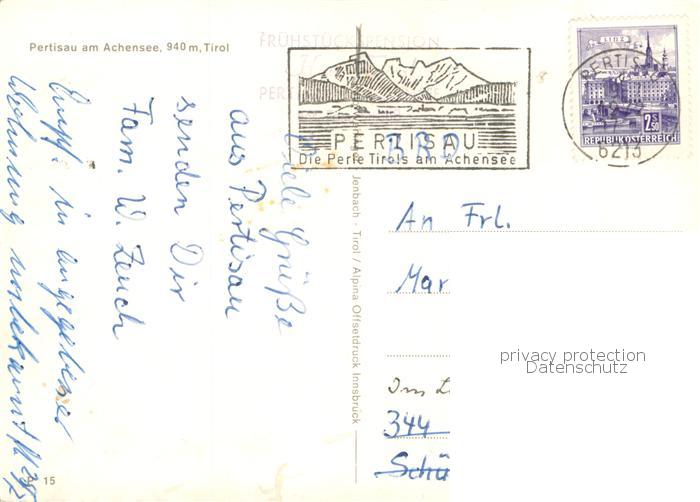 Pertisau am Achensee, 940 m, Tirol
FRÜHSTÜCKSPENSION
PERTISAU
Die Perle Tirols am Achensee
LINZ
2.50
REPUBLIK ÖSTERREICH
PERTISAU
6213
BRD
Viele Grüße
aus Pertisau
senden Dir
Fam. W. Zeuch
Empf. in angegebener
Wohnung unbekannt
Jenbach · Tirol / Alpina Offsetdruck Innsbruck
An Frl.
Mar
344
Schü
privacy protection
Datenschutz
15